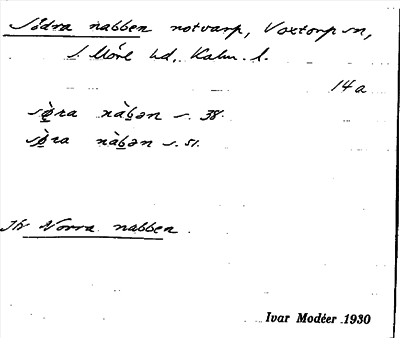 Södra nabben notvarp, Voxtorp sn,
S. Möre hd, Kalm. l.
14 a
sø̀ra nàbən s. 38.
sø̀ra nàbən s. 51.
Jfr Norra nabben
Ivar Modéer 1930